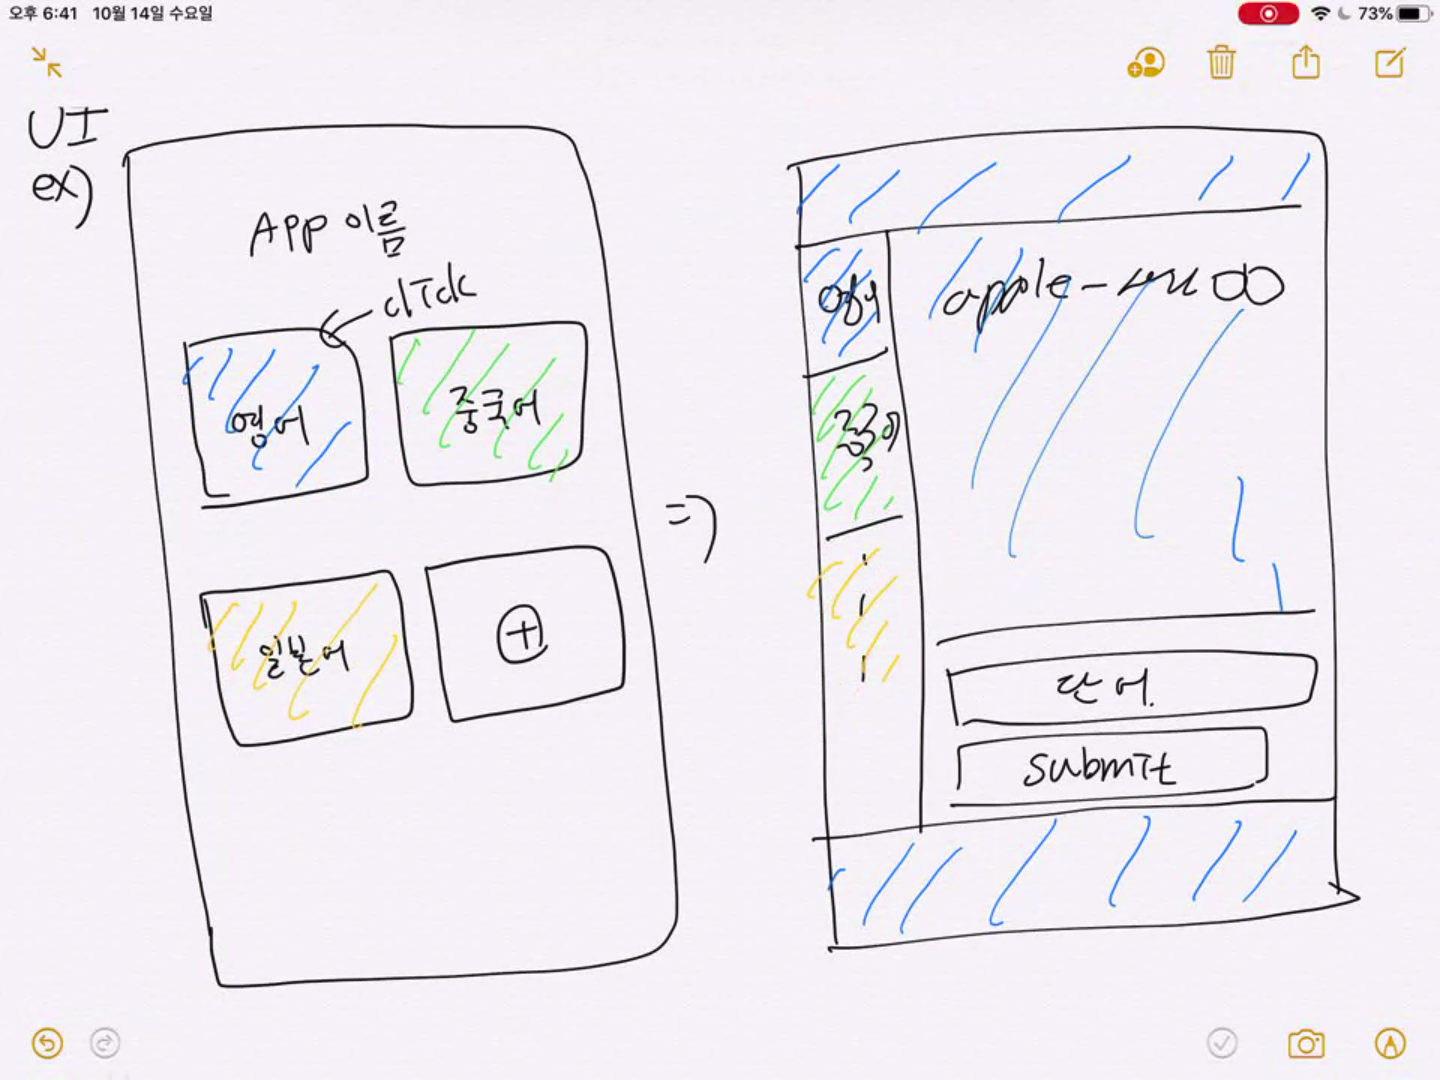 오후 6:41 10월 14일 수요일
73%
UI
ex)
App 이름
click
영어
중국어
일본어
+
=>
apple -
단어
submit